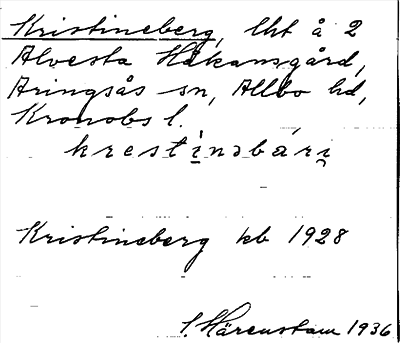 Kristineberg, lht å 2
Alvesta Håkansgård,
Aringsås sn, Allbo hd,
Kronobs l.
krestinɔbári
Kristineberg kb 1928
S. Härenstam 1936